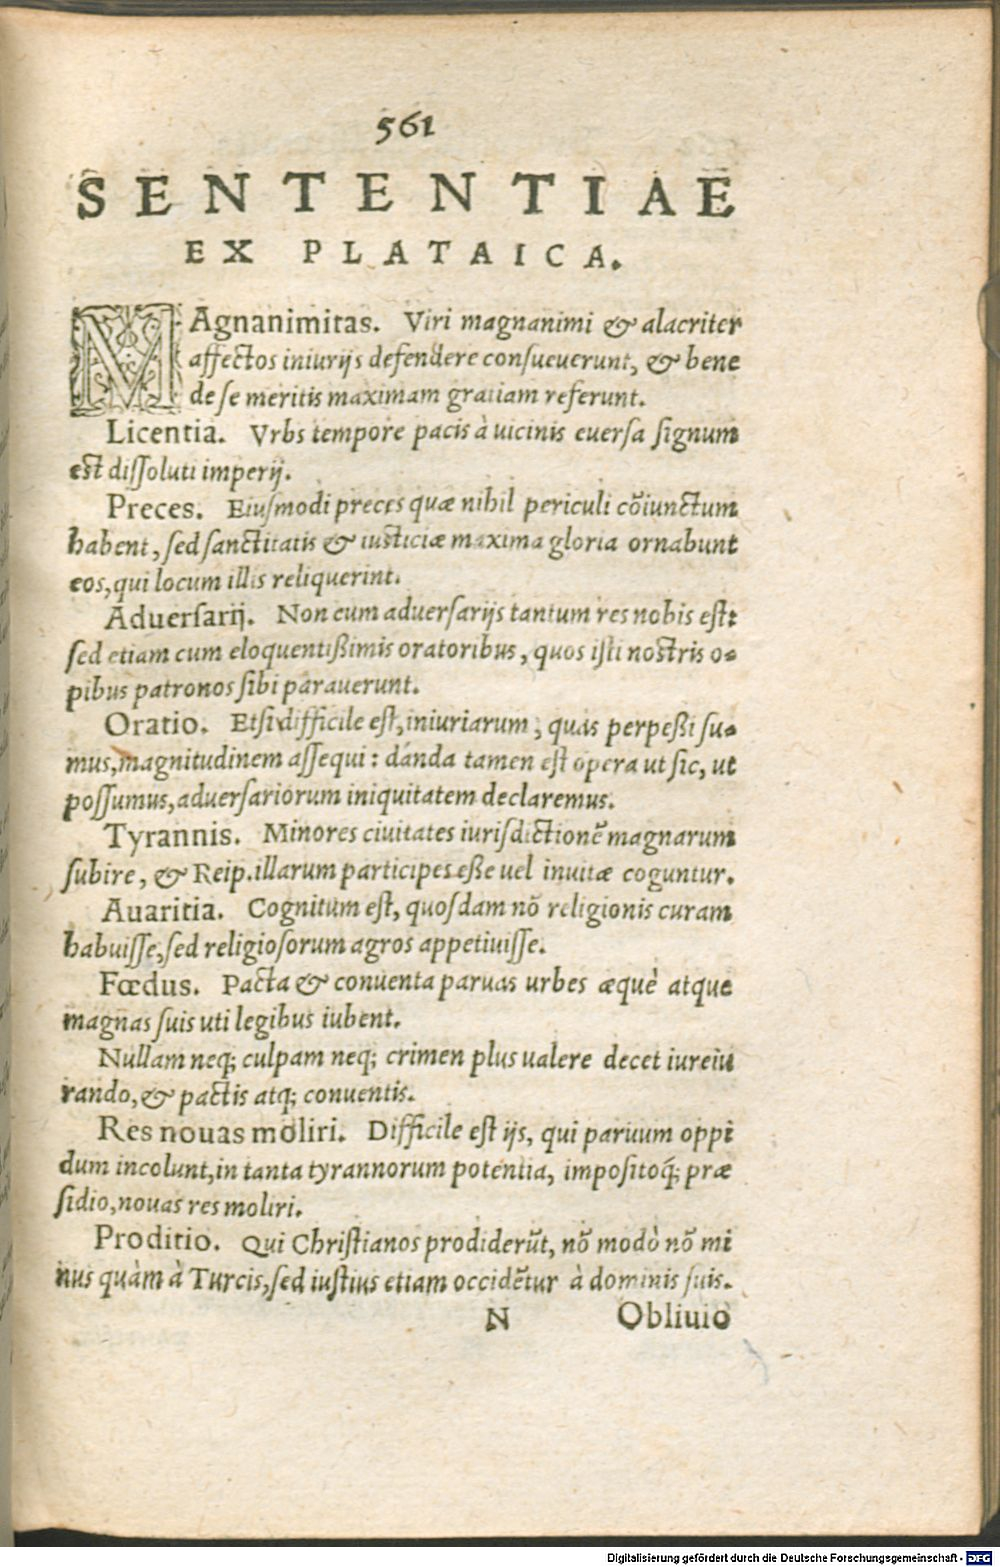 561
SENTENTIAE
EX PLATAICA.
MAgnanimitas. Viri magnanimi & alacriter
affectos iniurijs defendere consueuerunt, & bene
de se meritis maximam gratiam referunt.
Licentia. Vrbs tempore pacis à uicinis euersa signum
est dissoluti imperij.
Preces. Eiusmodi preces quæ nihil periculi cõiunctum
habent, sed sanctitatis & iusticiæ maxima gloria ornabunt
eos, qui locum illis reliquerint.
Aduersarij. Non cum aduersarijs tantum res nobis est:
sed etiam cum eloquentißimis oratoribus, quos isti nostris o-
pibus patronos sibi parauerunt.
Oratio. Etsi difficile est, iniuriarum, quas perpeßi su-
mus, magnitudinem assequi: danda tamen est opera ut sic, ut
possumus, aduersariorum iniquitatem declaremus.
Tyrannis. Minores ciuitates iurisdictionẽ magnarum
subire, & Reip. illarum participes eße uel inuitæ coguntur.
Auaritia. Cognitum est, quosdam nõ religionis curam
habuisse, sed religiosorum agros appetiuisse.
Fœdus. Pacta & conuenta paruas urbes æquè atque
magnas suis uti legibus iubent.
Nullam neq; culpam neq; crimen plus ualere decet iureiu
rando, & pactis atq; conuentis.
Res nouas moliri. Difficile est ijs, qui paruum oppi
dum incolunt, in tanta tyrannorum potentia, impositoq́; præ
sidio, nouas res moliri.
Proditio. Qui Christianos prodiderũt, nõ modò nõ mi
nus quàm à Turcis, sed iustius etiam occidẽtur à dominis suis.
N Obliuio
Digitalisierung gefördert durch die Deutsche Forschungsgemeinschaft - DFG